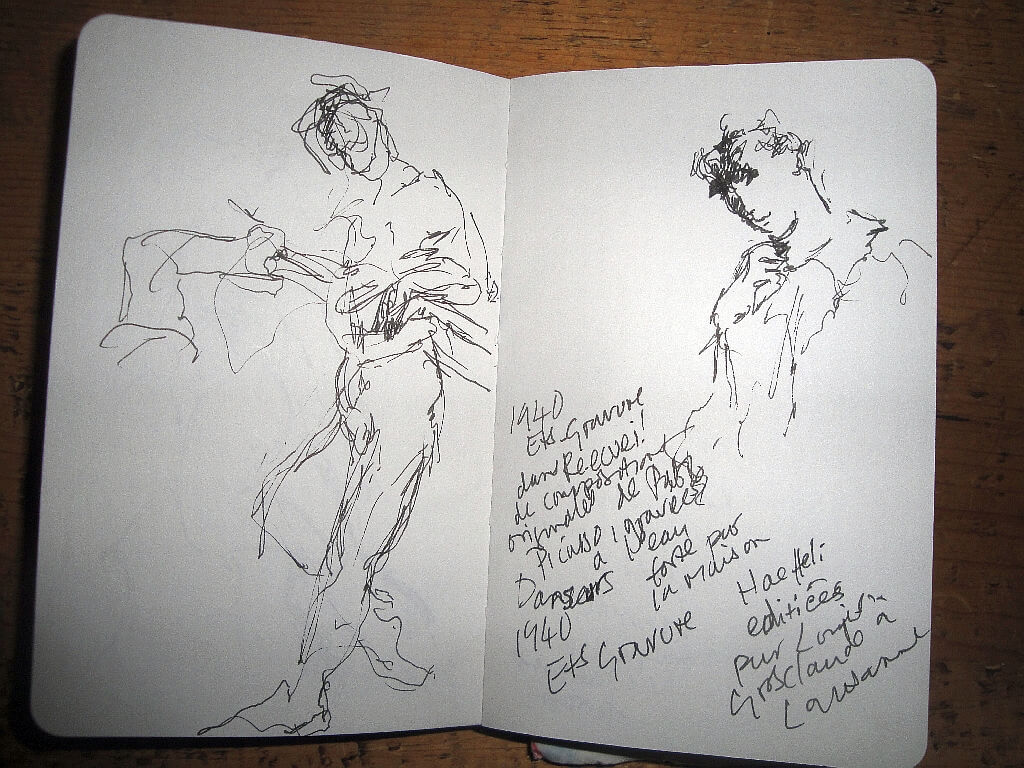 1940
Ets Gravure
dans Recueil
de compositions
originales de Pablo
Picasso, gravées
a l'eau
Danseurs forte par
1940 la Maison
Ets Gravure Haefeli
editiées
pur Louis
Grosclaude a
Lausanne